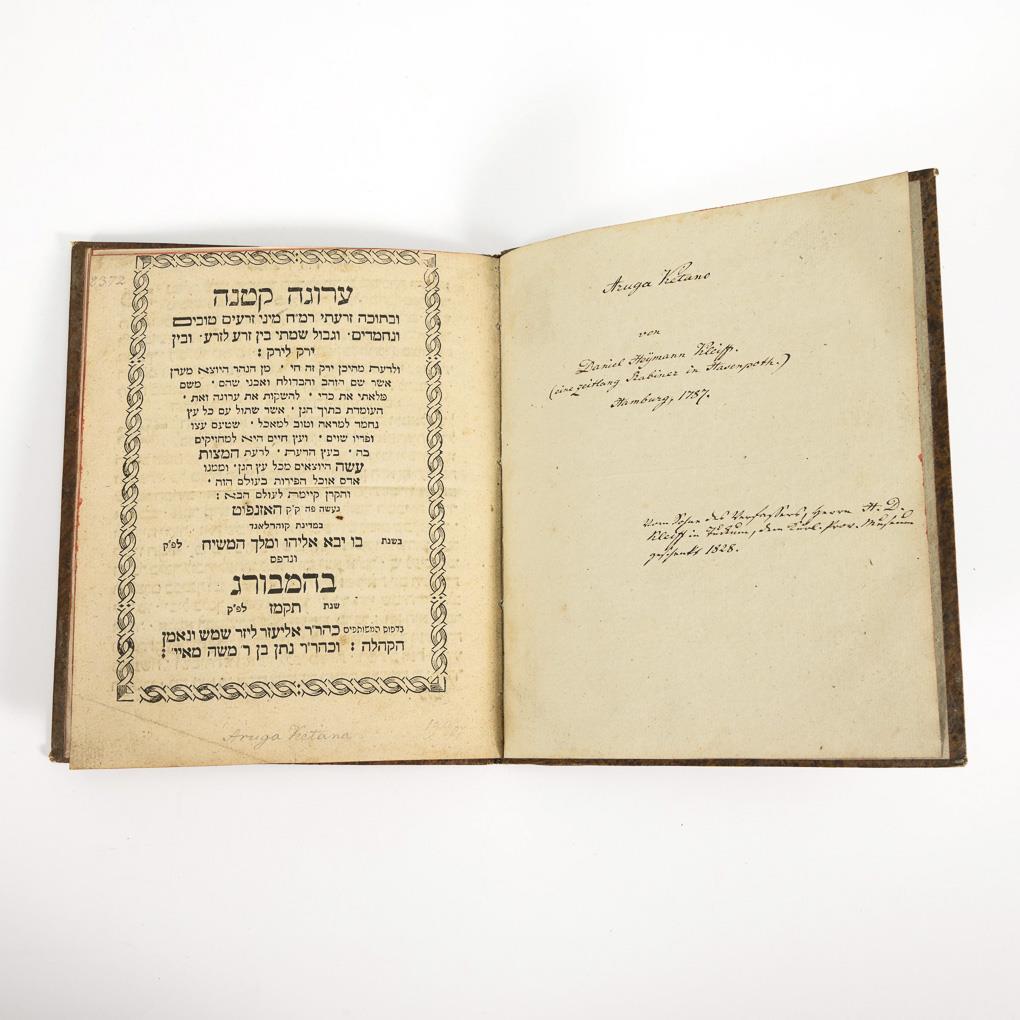 8372
ערוגה קטנה
ובתוכה זרעתי רמ״ח מיני זרעים טובים
ונחמדים· וגבול שמתי בין זרע לזרע· ובין
ירק לירק :
ולדעת מהיכן ירק זה חי · מן הנהר היוצא מעדן
אשר שם הזהב והבדולח ואבני שהם · משם
מלאתי את כדי · להשקות את ערוגה זאת ·
העומדת בתוך הגן · אשר שתול עם כל עץ
נחמד למראה וטוב למאכל · שטעם עצו
ופריו שוים · ועץ חיים היא למחזיקים
בה · בעץ הדעת · לדעת המצות
עשה היוצאים מכל עץ הגן · וממנו
אדם אוכל הפירות בעולם הזה ·
והקרן קיימת לעולם הבא :
נעשה פה ק״ק האזנפוט
במדינת קוהרלאנד
בשנת בו יבא אליהו ומלך המשיח לפ״ק
ונדפס
בהמבורג
שנת תקמז לפ״ק
בדפוס המשותפים כהר״ר אליעזר ליזר שמש ונאמן
הקהלה : וכהר״ר נתן בן ר׳ משה מאיי״ :
Aruga Ketana
Aruga Ketano
von
Daniel Heÿmann Kleiff.
(eine zeitlang Rabiner in Hasenpoth.)
Hamburg, 1787.
Vom Sohne des Verfassers, Herrn H. D.
Kleiff in Tuckum, dem Kurl. Prov. Museum
geschenkt 1828.